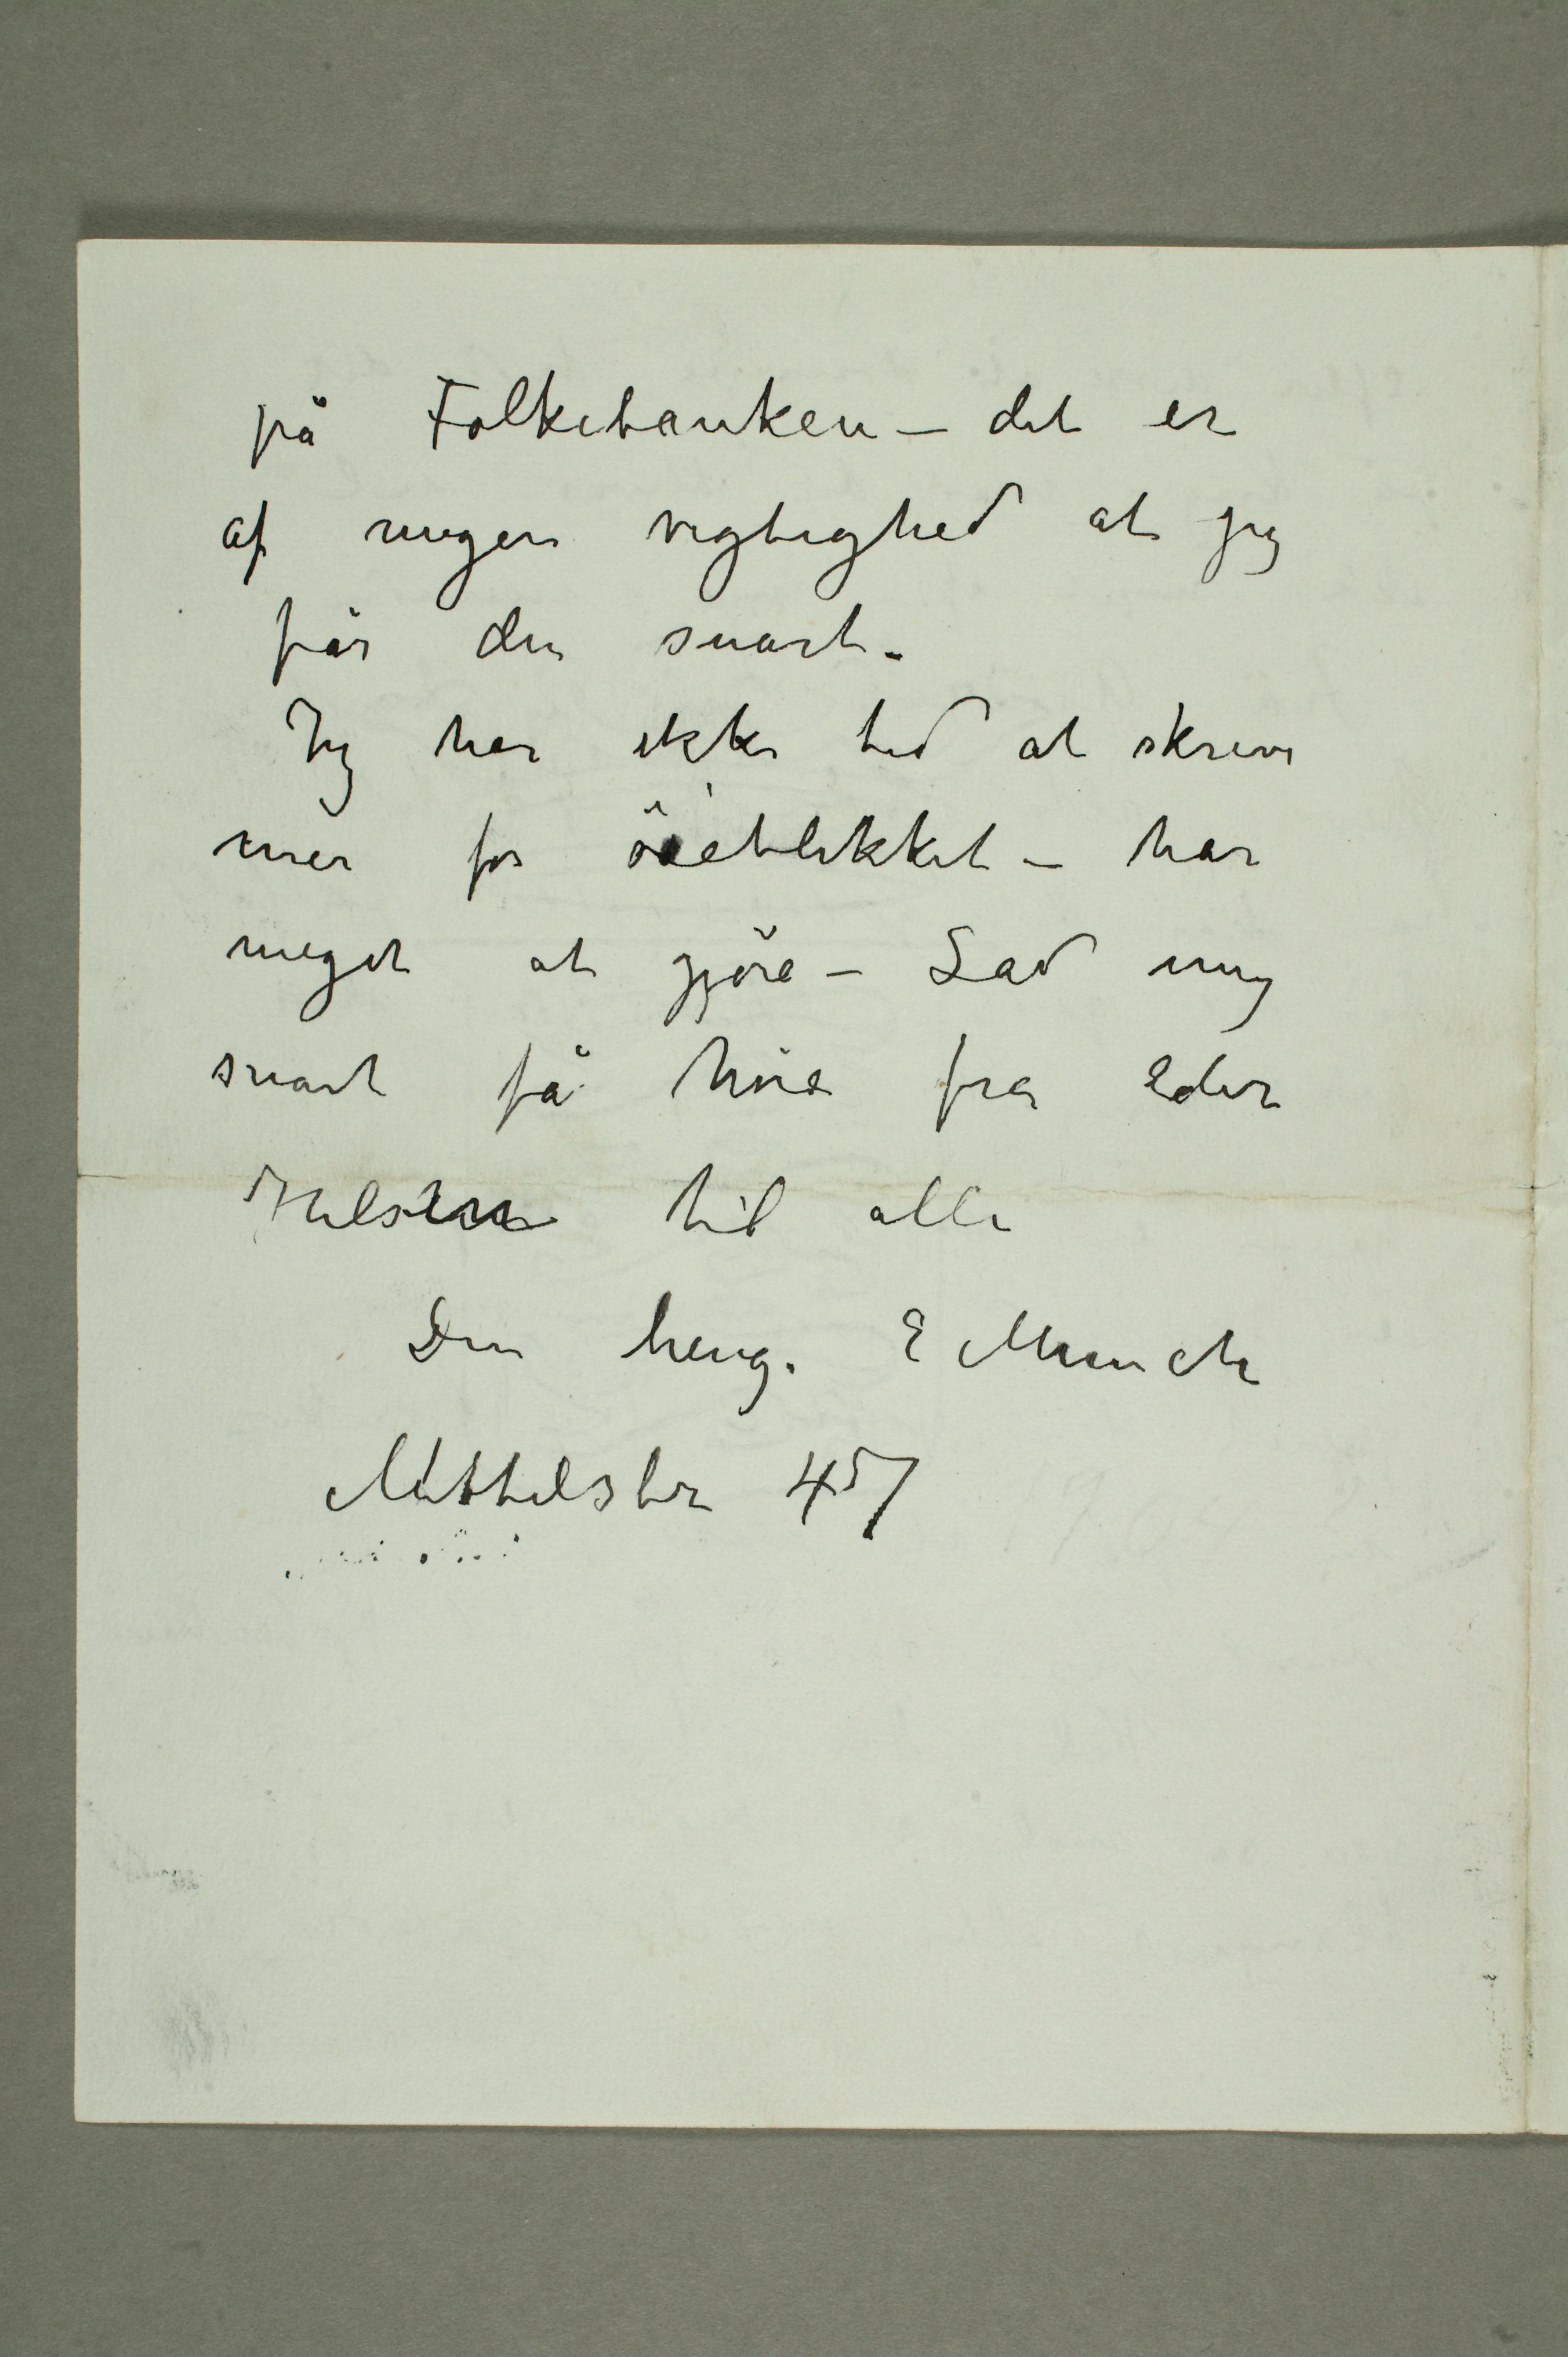 på Folkebanken – det er
af megen vigtighed at jeg
får den snart.
Jeg har ikke tid at skrive
mer for öieblikket – har
meget at gjöre – Lad mig
snart få höre fra Eder
Hilsen til alle
Din heng. E Munch
Mittelstr 457